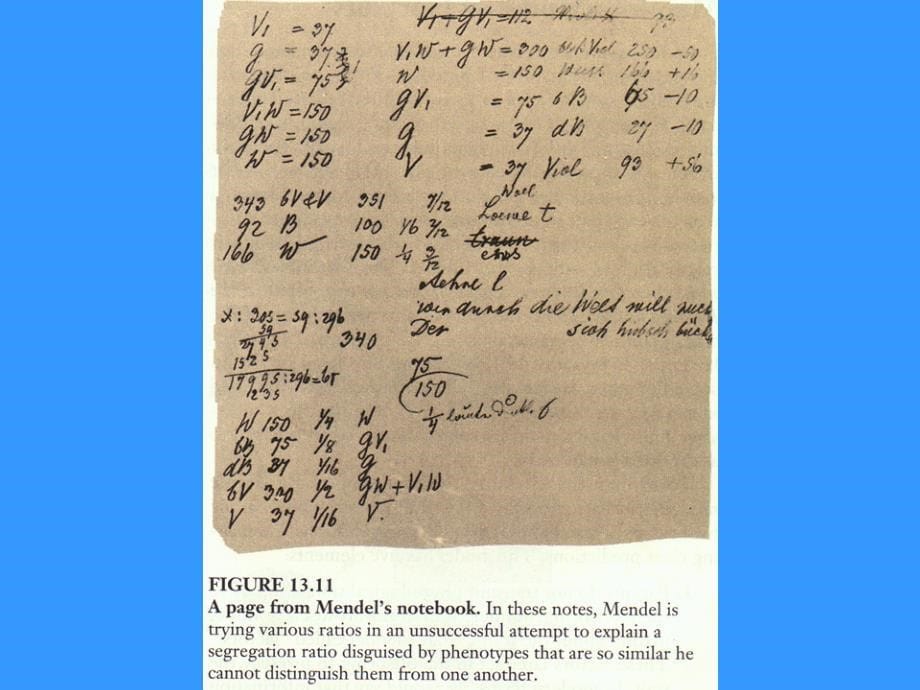 V₁ = 37
g = 37
gV₁ = 75
V₁W = 150
gW = 150
W = 150
V₁ + gV₁ = 112 93
V₁W + gW = 300 Viol 250 -50
W = 150 166 +16
gV₁ = 75 6B 65 -10
g = 37 dB 27 -10
V = 37 Viol 93 +56
343 6V&V 351 7/12
92 B 100 1/6 2/12
166 W 150 1/4 3/12
t
l
die Welt will
Der
x : 305 = 59 : 296
59
1525
17995 : 296 =
1235
340
75
150
1/4
W 150 1/4 W
6B 75 1/8 gV₁
dB 37 1/16 g
6V 300 1/2 gW + V₁W
V 37 1/16 V.
FIGURE 13.11
A page from Mendel's notebook. In these notes, Mendel is
trying various ratios in an unsuccessful attempt to explain a
segregation ratio disguised by phenotypes that are so similar he
cannot distinguish them from one another.